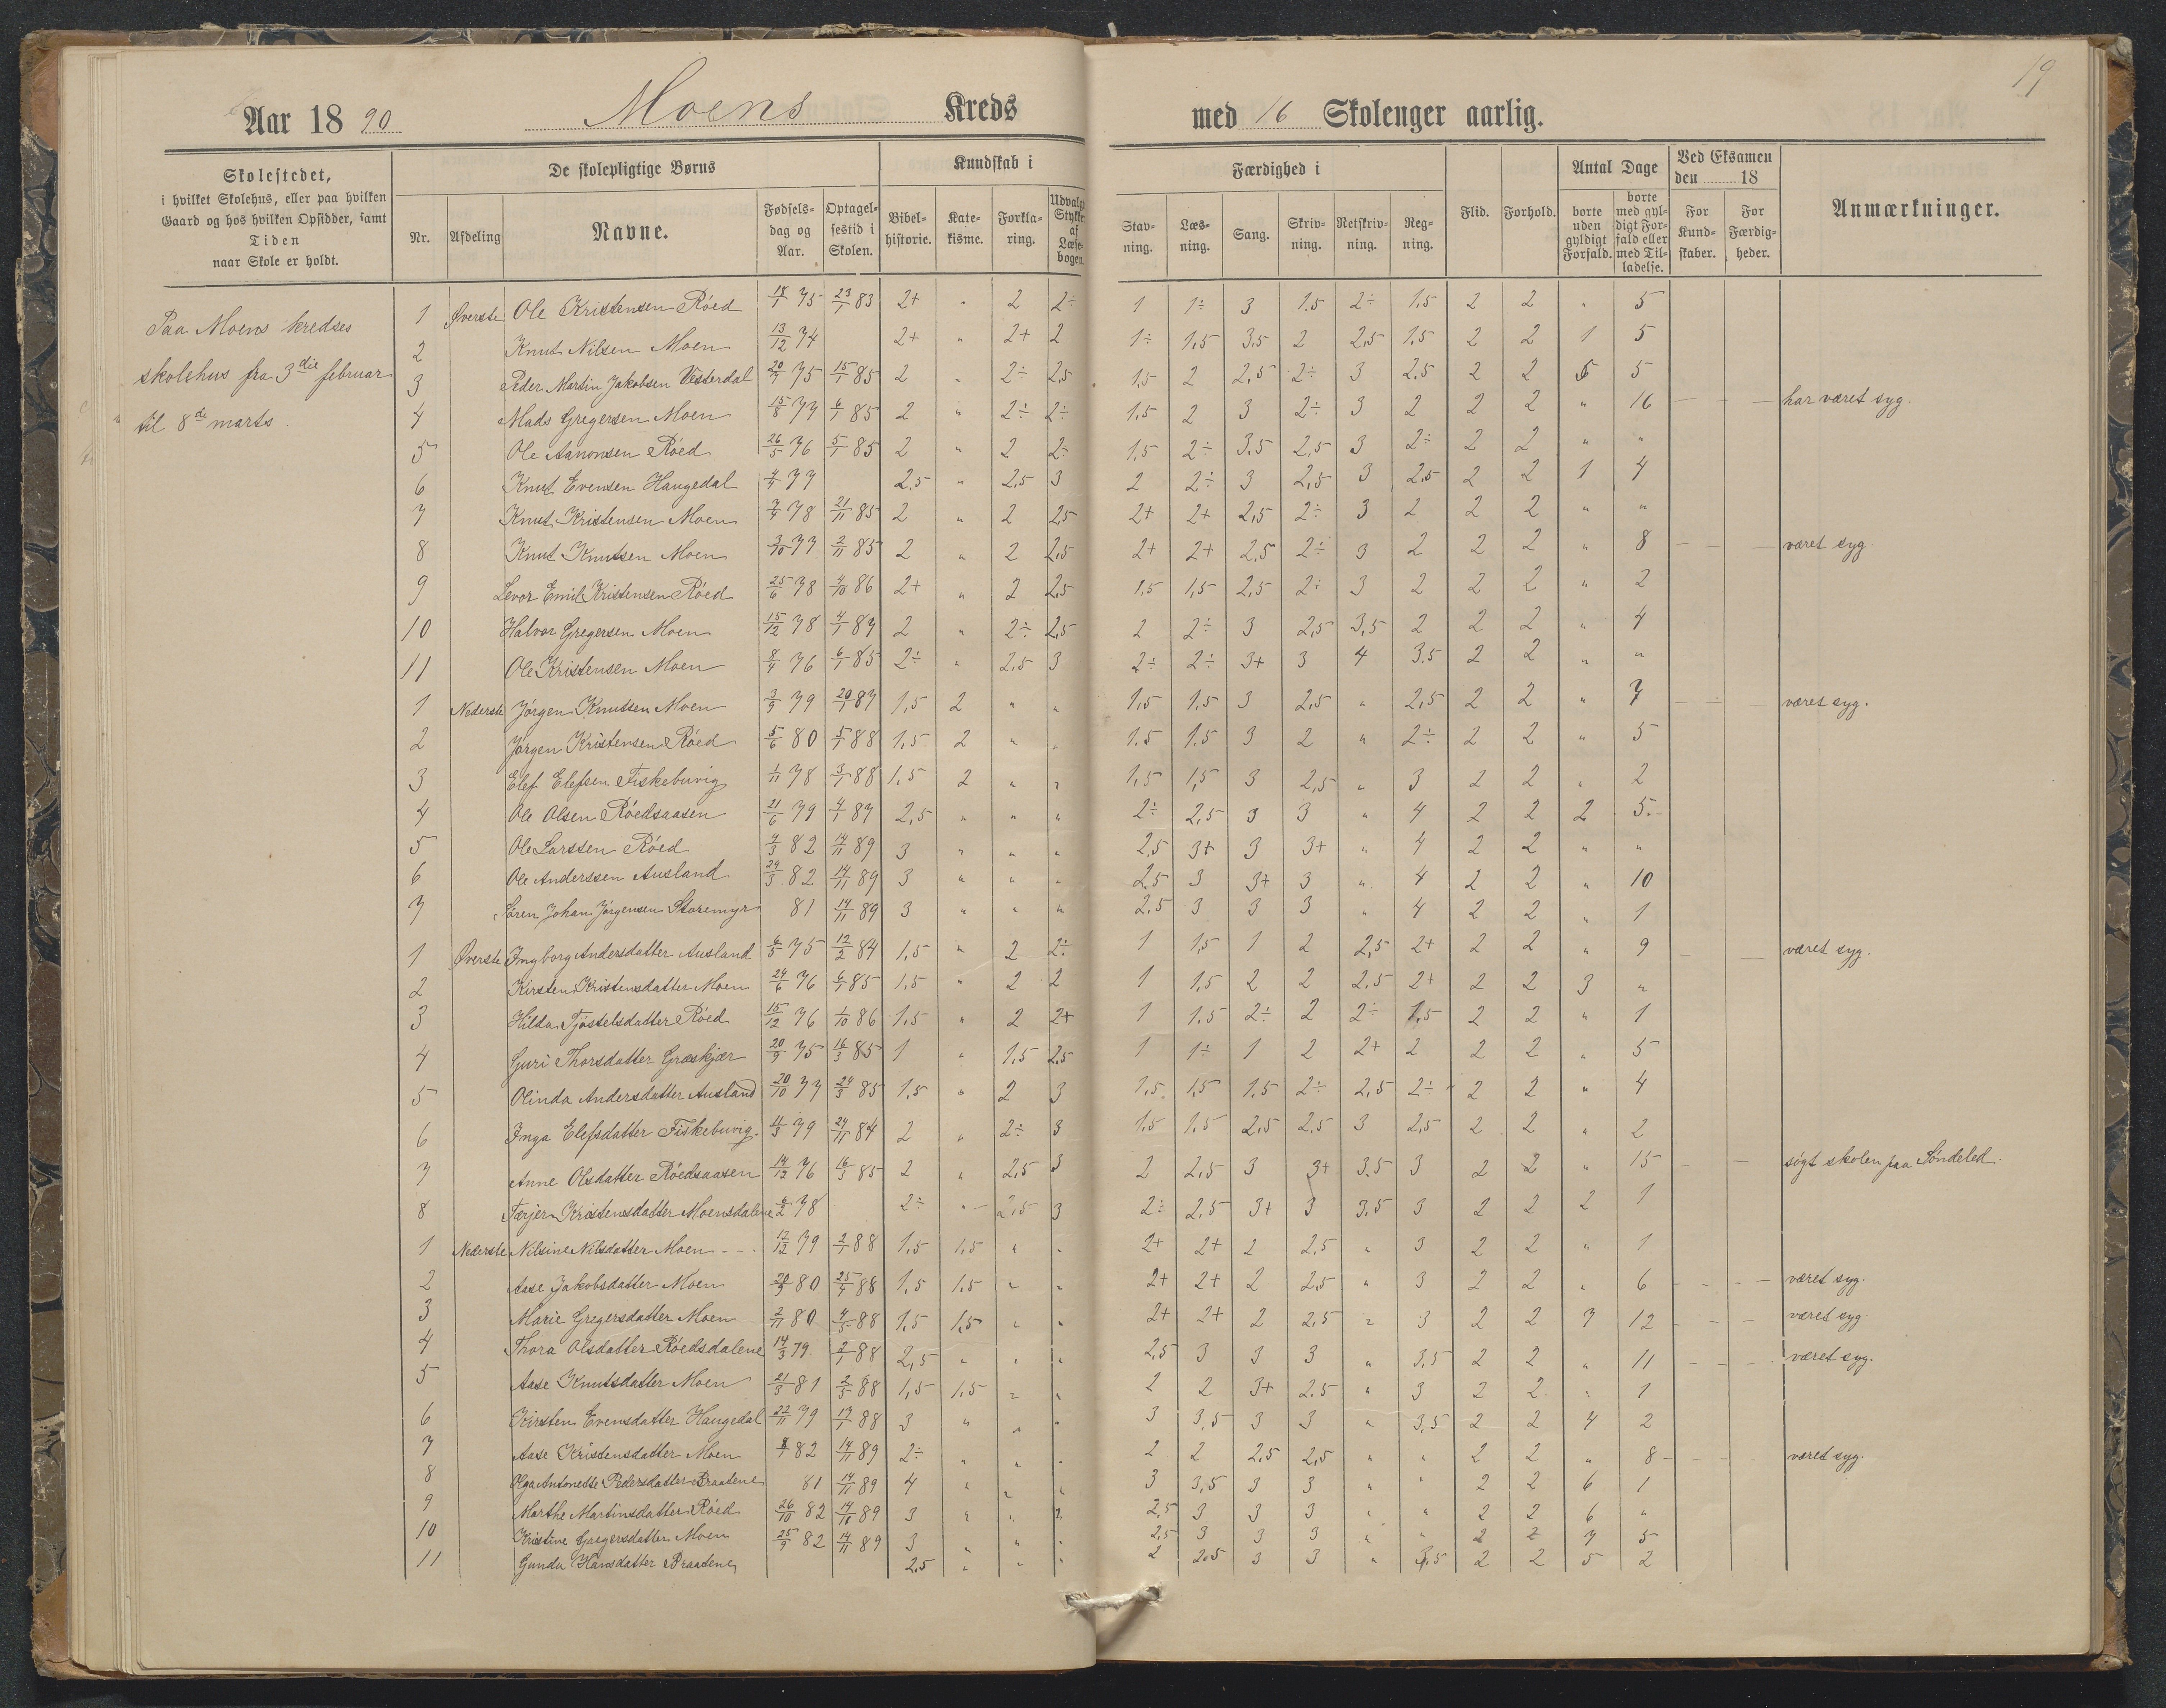 19
Aar 1890 Moens Kreds med 16 Skolenger aarlig.
Skolestedet, i hvilket Skolehus, eller paa hvilken Gaard og hos hvilken Opsidder, samt Tiden naar Skole er holdt.
De skolepligtige Børns
Nr. Afdeling Navne. Fødsels-dag og Aar. Optagel-sestid i Skolen.
Kundskab i
Bibel-historie. Kate-kisme. Forkla-ring. Udvalgte Stykker af Læse-bogen.
Færdighed i
Stav-ning. Læs-ning. Sang. Skriv-ning. Retskriv-ning. Reg-ning.
Flid. Forhold.
Antal Dage
borte uden gyldigt Forfald. borte med gyl-digt For-fald eller med Til-ladelse.
Ved Eksamen den 18
For Kund-skaber. For Færdig-heder.
Anmærkninger.
Paa Moens kredses
skolehus fra 3die februar
til 8de marts.
1 Øverste Ole Kristensen Röed 18/1 75 23/1 83 2+ " 2 2÷ 1 1÷ 3 1.5 2÷ 1.5 2 2 " 5
2 Knut Nilsen Moen 13/12 74 2+ " 2+ 2 1÷ 1,5 3,5 2 2,5 1.5 2 2 1 5
3 Peder Martin Jakobsen Vesterdal 20/7 75 15/1 85 2 " 2÷ 2,5 1,5 2 2,5 2÷ 3 2.5 2 2 5 5
4 Mads Gregersen Moen 15/8 77 6/1 85 2 " 2÷ 2÷ 1.5 2 3 2÷ 3 2 2 2 " 16 — — — har været syg.
5 Ole Aanonsen Röed 26/5 76 5/1 85 2 " 2 2÷ 1,5 2÷ 3.5 2,5 3 2÷ 2 2 " "
6 Knut Evensen Haugedal 4/4 77 2.5 " 2,5 3 2 2÷ 3 2,5 3 2,5 2 2 1 4
7 Knut Kristensen Moen 7/4 78 21/11 85 2 " 2 2,5 2+ 2+ 2,5 2÷ 3 2 2 2 " "
8 Knut Knutsen Moen 3/10 77 2/11 85 2 " 2 2,5 2+ 2+ 2,5 2÷ 3 2 2 2 " 8 — — — været syg
9 Levor Emil Kristensen Röed 25/6 78 4/10 86 2+ " 2 2,5 1,5 1,5 2,5 2÷ 3 2 2 2 " 2
10 Halvor Gregersen Moen 15/12 78 4/1 87 2 " 2÷ 2,5 2 2÷ 3 2,5 3,5 2 2 2 " 4
11 Ole Kristensen Moen 8/4 76 6/1 85 2÷ " 2,5 3 2÷ 2÷ 3+ 3 4 3.5 2 2 " "
1 Nederste Jörgen Knutsen Moen 3/9 79 20/1 87 1,5 2 " " 1,5 1.5 3 2,5 " 2,5 2 2 " 7 — — — været syg.
2 Jörgen Kristensen Röed 5/6 80 5/1 88 1,5 2 " " 1.5 1.5 3 2 " 2÷ 2 2 " 5
3 Elef Elefsen Fiskebuvig 1/11 78 3/1 88 1,5 2 " " 1,5 1,5 3 2,5 " 3 2 2 " 2
4 Ole Olsen Röedsaasen 21/6 79 4/1 87 2,5 " " " 2÷ 2,5 3 3 " 4 2 2 2 5
5 Ole Larssen Röed 4/3 82 14/11 89 3 " " " 2,5 3+ 3 3+ " 4 2 2 " "
6 Ole Anderssen Ausland 24/3 82 14/11 89 3 " " " 2,5 3 3+ 3 " 4 2 2 " 10
7 Sören Johan Jörgensen Storemyr 81 14/11 89 3 " " " 2,5 3 3 3 " 4 2 2 " 1
1 Øverste Ingborg Andersdatter Ausland 6/5 75 12/2 84 1,5 " 2 2÷ 1 1,5 1 2 2,5 2+ 2 2 " 9 — — været syg.
2 Kirsten Kristensdatter Moen 24/6 76 6/1 85 1,5 " 2 2 1 1,5 2 2 2.5 2+ 2 2 3 "
3 Hilda Tjöstelsdatter Röed 15/12 76 1/10 86 1,5 " 2 2+ 1 1.5 2÷ 2 2÷ 1,5 2 2 " 1
4 Guri Thorsdatter Græskjær 20/9 75 16/3 85 1 " 1,5 2,5 1 1÷ 1 2 2+ 2 2 2 " 5
5 Olinda Andersdatter Ausland 20/10 77 24/3 85 1,5 " 2 3 1,5 1,5 1.5 2÷ 2,5 2÷ 2 2 " 4
6 Inga Elefsdatter Fiskebuvig. 4/3 79 24/11 84 2 " 2÷ 3 1.5 1,5 2,5 2.5 3 2,5 2 2 " 2
7 Anne Olsdatter Röedsaasen 14/12 76 16/3 85 2 " 2,5 3 2 2,5 3 3+ 3.5 3 2 2 " 15 — — sögt skolen paa Söndeled.
8 Terjer Kristensdatter Moensdalene 6/2 78 2÷ " 2,5 3 2÷ 2.5 3+ 3 3.5 3 2 2 2 1
1 Nederste Nilsine Nilsdatter Moen 12/12 79 2/1 88 1,5 1,5 " " 2+ 2+ 2 2.5 " 3 2 2 " 1
2 Aase Jakobsdatter Moen 80 25/4 88 1,5 1,5 " " 2+ 2+ 2 2,5 " 3 2 2 " 6 — — — været syg.
3 Marie Gregersdatter Moen 2/11 80 4/5 88 1.5 1,5 " " 2+ 2+ 2 2,5 " 3 2 2 7 12 — — — været syg
4 Thora Olsdatter Röedsdalene 14/3 79. 2/1 88 2,5 " " " 2,5 3 3 3 " 3,5 2 2 " 11 — — — været syg.
5 Aase Knutsdatter Moen 21/3 81 2/5 88 1,5 1,5 " " 2 2 3+ 2.5 " 3 2 2 " 1
6 Kirsten Evensdatter Haugedal 22/11 79 17/1 88 3 " " " 3 3,5 3 3 " 3,5 2 2 4 2
7 Aase Kristensdatter Moen 82 14/11 89 2÷ " " " 2 2 2,5 2,5 " " 2 2 " 8 — — — været syg.
8 Olga Antonette Pedersdatter Braatene 81 14/11 89 4 " " " 3 3,5 3 3 " " 2 2 6 1
9 Marthe Martinsdatter Röed 26/10 82 14/11 89 3 " " " 2,5 3 3 3 " " 2 2 6 "
10 Kristine Gregersdatter Moen 25/9 82 14/11 89 3 " " " 2,5 3 3 3 " " 2 2 7 5
11 Gunda Hansdatter Braatene 2,5 " " " 2 2.5 3 3 " 3,5 2 2 5 2